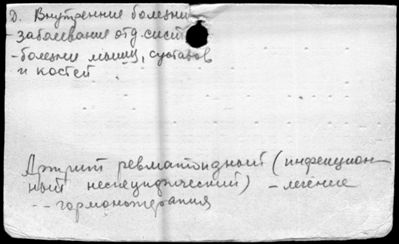 Д. Внутренние болезни
- заболевания отд. сист
- болезни мышц, суставов
и костей
Артрит ревматоидный (инфекцион-
ный неспецифический) - лечение
-- гормонотерапия